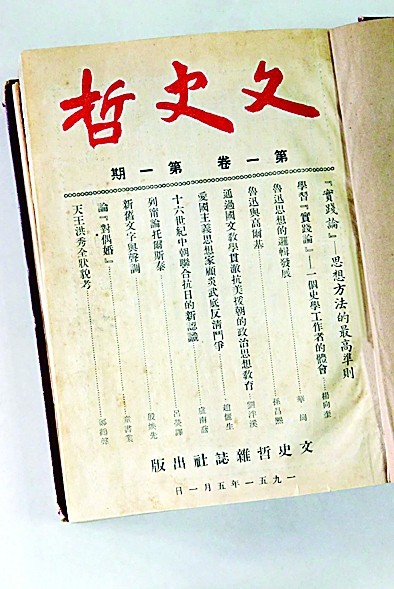 文史哲
第一卷 第一期
『實踐論』 思想方法的最高準則
學習『實踐論』——一個史學工作者的體會……楊向奎
魯迅思想的邏輯發展……華岡
魯迅與高爾基……孫昌熙
通過國文教學貫徹抗美援朝的政治思想教育……劉泮溪
愛國主義思想家顧炎武底反清鬥爭……趙儷生
十六世紀中朝聯合抗日的新認識……盧南喬
列甯論托爾斯泰……呂熒譯
新舊文字與聲調……殷煥先
論『對偶婚』……童書業
天王洪秀全狀貌考……鄭鶴聲
文史哲雜誌社出版
一九五一年五月一日